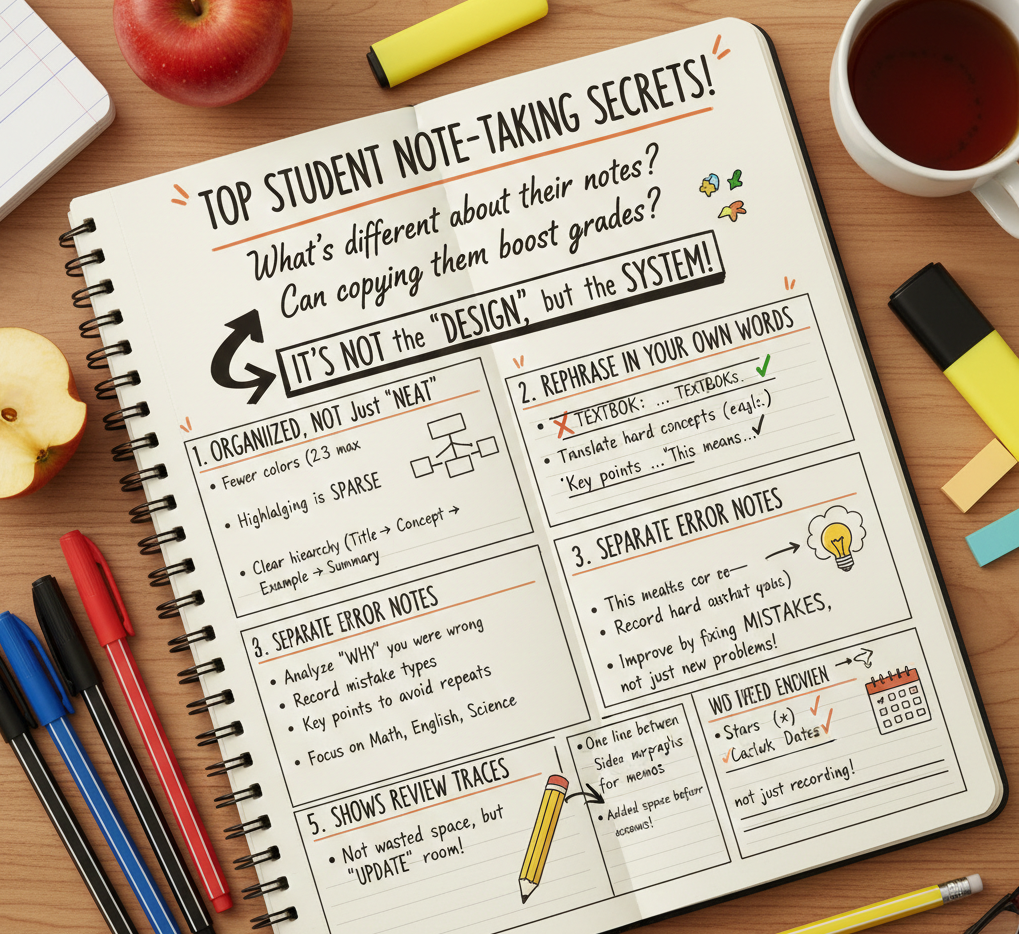 TOP STUDENT NOTE-TAKING SECRETS!
What's different about their notes?
Can copying them boost grades?
IT'S NOT the "DESIGN", but the SYSTEM!
1. ORGANIZED, NOT Just "NEAT"
• Fewer colors (23 max
• Highlalging is SPARSE
• Clear hiearchy (Title → Concept →
Example → Summary
2. REPHRASE IN YOUR OWN WORDS
• ✗ TEXTBOK: ... TEXTBOKs. ✓
• Translate hard concepts
• Key points ... "This means... ✓
3. SEPARATE ERROR NOTES
• Analyze "WHY" you were wrong
• Record mistake types
• Key points to avoid repeats
• Focus on Math, English, Science
3. SEPARATE ERROR NOTES
• This
• Record hard
• Improve by fixing MISTAKES,
not just new problems!
5. SHOWS REVIEW TRACES
• Not wasted space, but
"UPDATE" room!
• One line betwen
for memos
• Added space before
• Stars (*) ✓
not just recording!